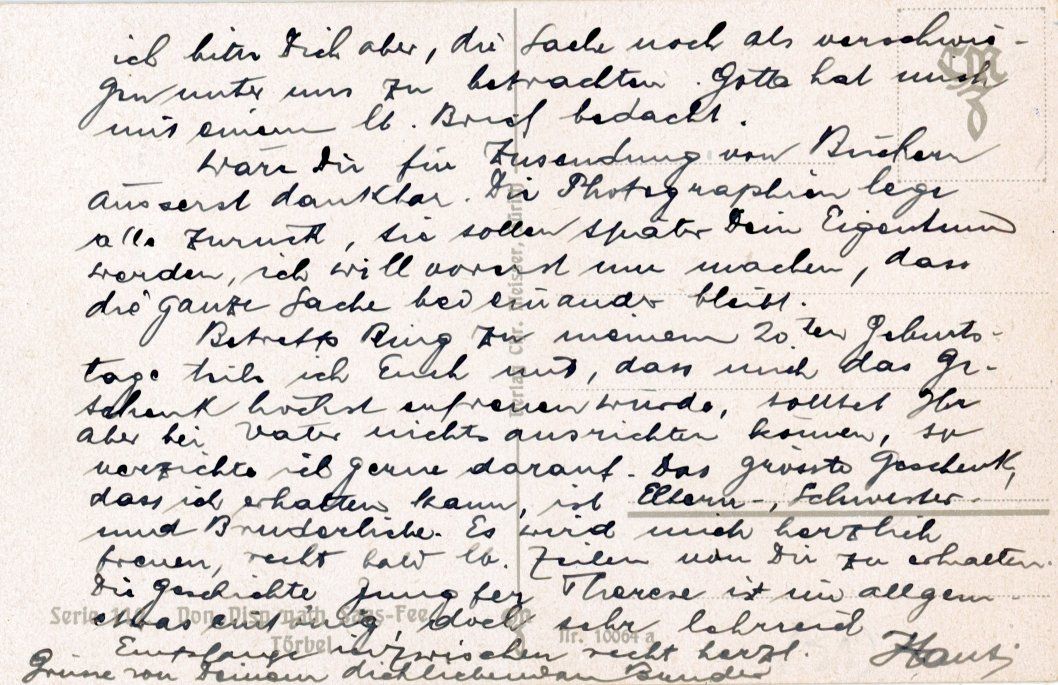 ich bitte Dich aber, die Sache noch als verschwie-
gen unter uns zu betrachten. Gotte hat mich
mit einem lb. Brief bedacht.
Wäre Dir für Zusendung von Büchern
äusserst dankbar. Die Photographien lege
alle zurück, sie sollen später Dein Eigentum
werden, ich will vorerst nur machen, dass
die ganze Sache bei einander bleibt.
Betreffs Ring zu meinem 20.ten Geburts-
tage teile ich Euch mit, dass mich das Ge-
schenk höchst erfreuen würde, solltet Ihr
aber bei Vater nichts ausrichten können, so
verzichte ich gerne darauf. Das grösste Geschenk,
dass ich erhalten kann, ist Eltern-, Schwester-
und Bruderliebe. Es wird mich herzlich
freuen, recht bald lb. Zeilen von Dir zu erhalten.
Die Geschichte Jungfer Therese ist im allgem.
etwas, doch sehr lehrreich
Empfange inzwischen recht herzl.
Grüsse von Deinem Dichliebenden Bruder
Hansi
Verlag Chr. Meisser, Zürich
Serie Von Visp nach Saas-Fee
Törbel
Nr. 10064 a